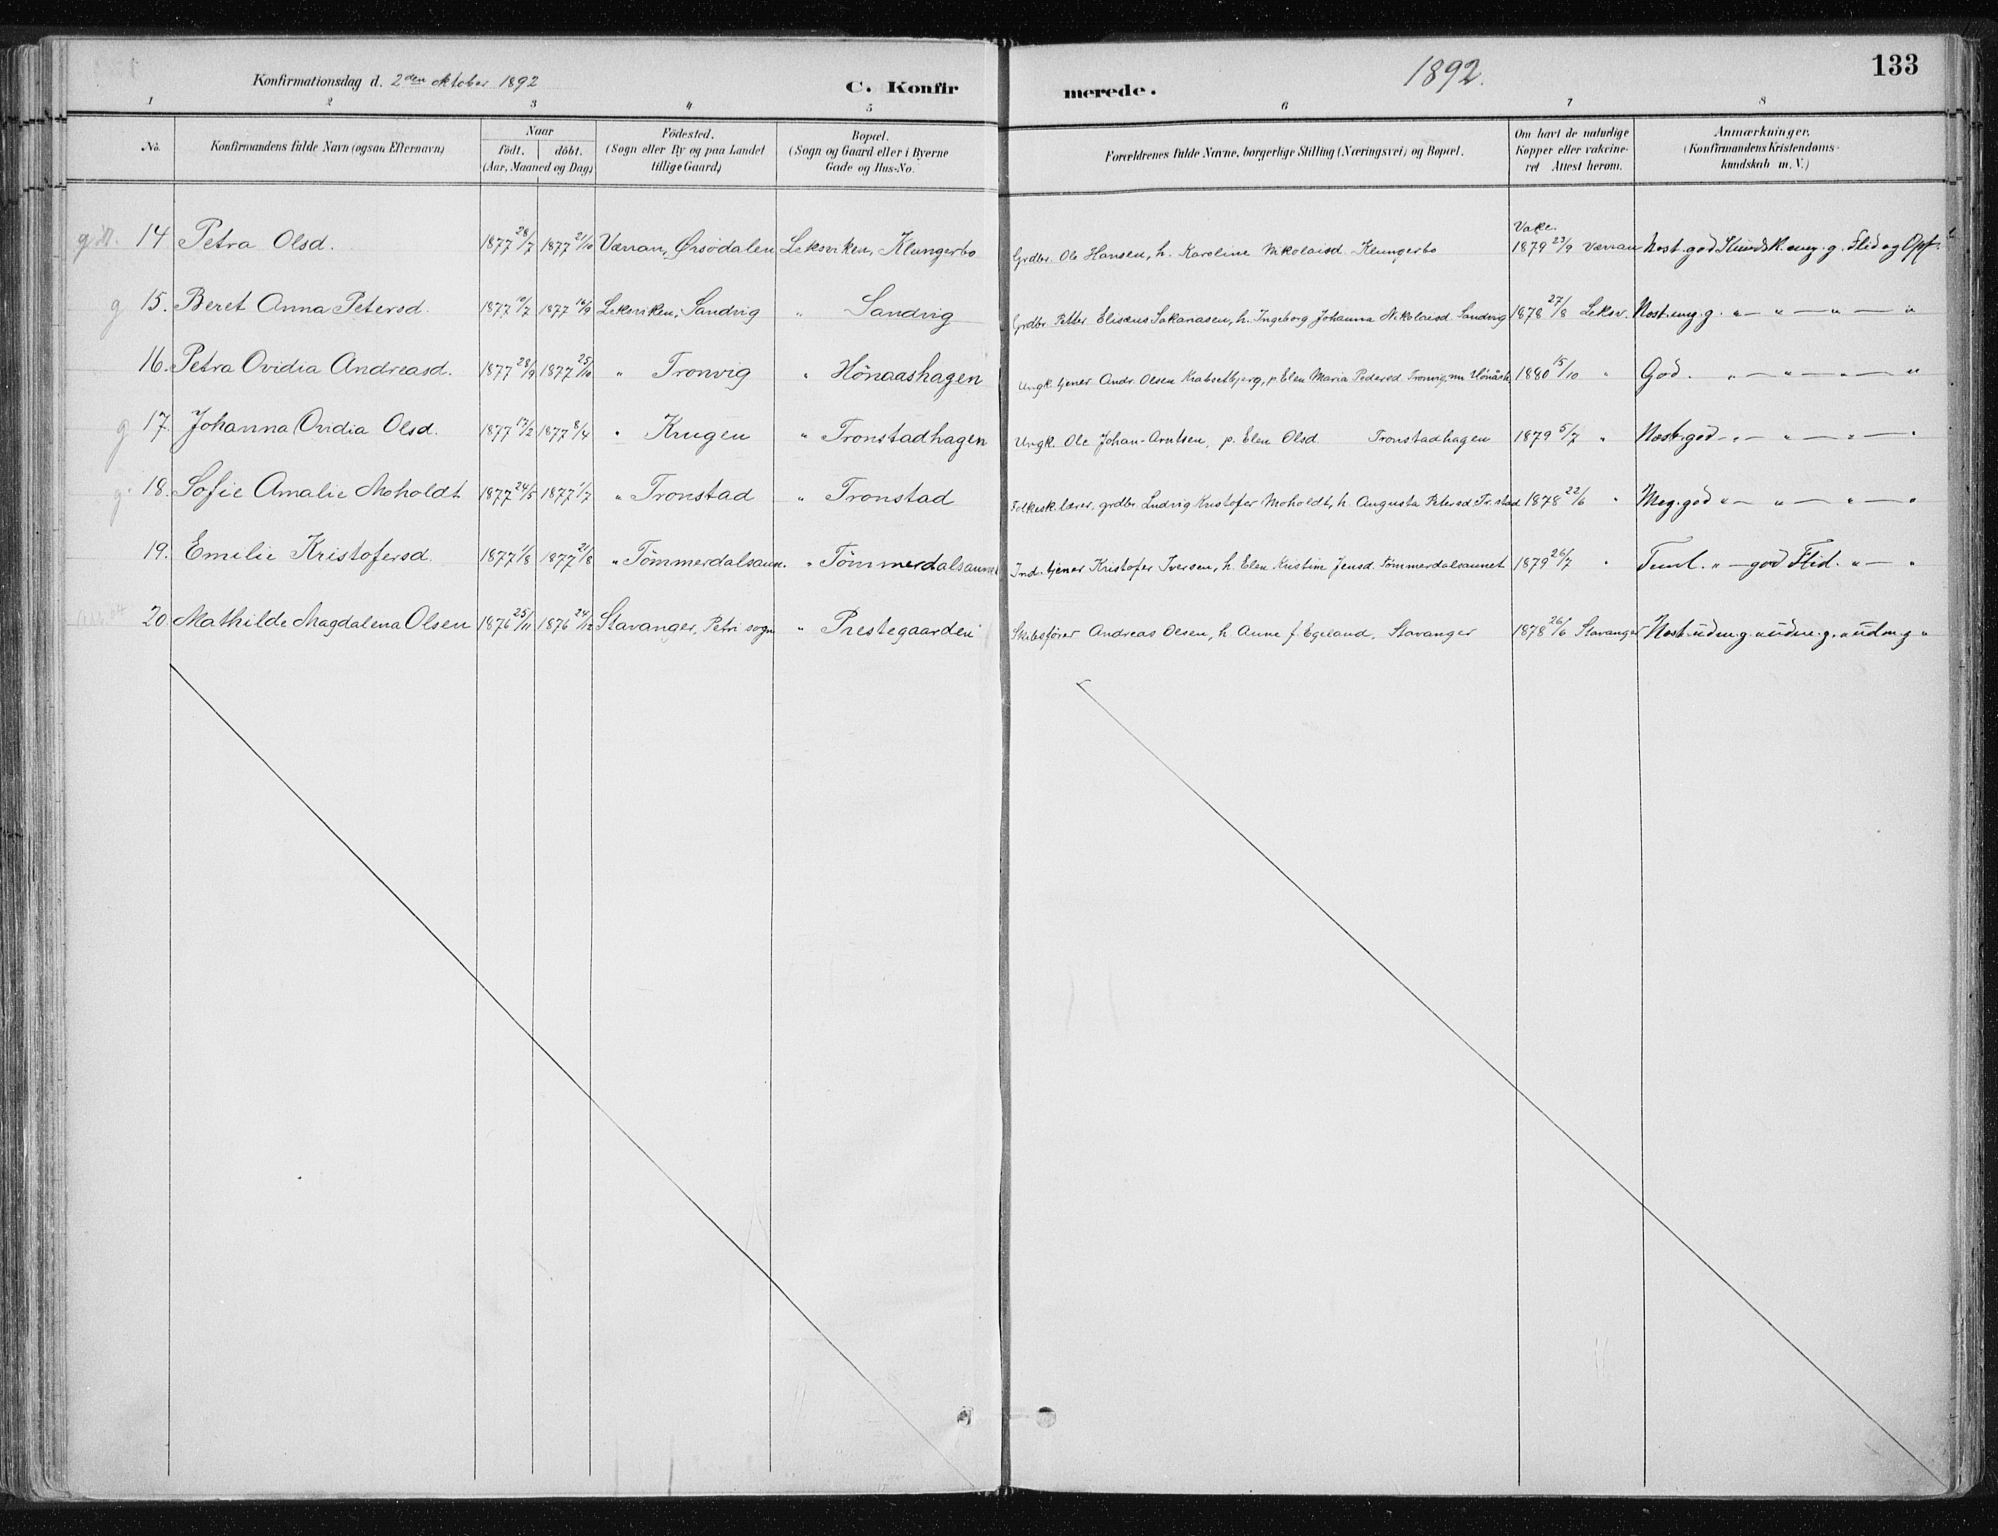 Konfirmationsdag d. 2den oktober 1892
C. Konfirmerede.
1892.
133
1 2 3 4 5 6 7 8
No. Konfirmandens fulde Navn (ogsaa Efternavn) Naar födt. döbt. (Aar, Maaned og Dag) Födested. (Sogn eller By og paa Landet tillige Gaard) Bopæl. (Sogn og Gaard eller i Byerne Gade og Hus-No. Forældrenes fulde Navne, borgerlige Stilling (Næringsvei) og Bopæl. Om havt de naturlige Kopper eller vakcineret Attest herom. Anmærkninger. (Konfirmandens Kristendomskundskab m. V.)
14 Petra Olsd. 1877 28/7 1877 21/10 Værran, Ørsödalen Leksviken, Klungerbo Grdbr. Ole Hansen, h. Karoline Nikolaisd. Klungerbo Vakc. 1879 23/9 Værran Næst. god Kundsk. meg. g. Flid og Opf.
g 15. Beret Anna Petersd. 1877 10/7 1877 16/9 Leksviken, Sandvig " Sandvig Grdbr. Petter Elisæus Sakariasen, h. Ingeborg Johanna Nikolaisd. Sandvig 1878 27/8 Leksv. Næst. meg. g. " — " — " — "
16. Petra Ovidia Andreasd. 1877 28/9 1877 25/10 " Tronvig " Hönaashagen Ungk. tjener Andr. Olsen Krabselbjerg, p. Elen Maria Pedersd. Tronvig, nu Hönåsh 1880 15/10 " God. " — " — " — "
g 17. Johanna Ovidia Olsd. 1877 17/2 1877 8/4 " Krugen " Tronstadhagen Ungk. Ole Johan Arntsen, p. Elen Olsd. Tronstadhagen 1879 5/7 " Næst. god " — " — " — "
g. 18. Sofie Amalie Moholdt 1877 24/5 1877 1/7 " Tronstad " Tronstad Folkesk.lærer, grdbr. Ludvig Kristofer Moholdt, h. Augusta Petersd. Tr.stad 1878 22/6 " Meg. god " — " — " — "
19. Emilie Kristofersd. 1877 1/8 1877 21/8 " Tömmerdalsaun. " Tömmerdalsaunet Ind. tjener Kristofer Iversen, h. Elen Kristine Jensd. Tömmerdalsaunet 1879 26/7 " Teml. " — god Flid. " — "
20. Mathilde Magdalena Olsen 1876 25/11 1876 24/12 Stavanger, Petri sogn " Prestegaarden Skibsförer Andreas Olsen, h. Anne f. Egeland, Stavanger 1878 26/6 Stavanger Næst. udm. g. " udm. g. " udm. g "